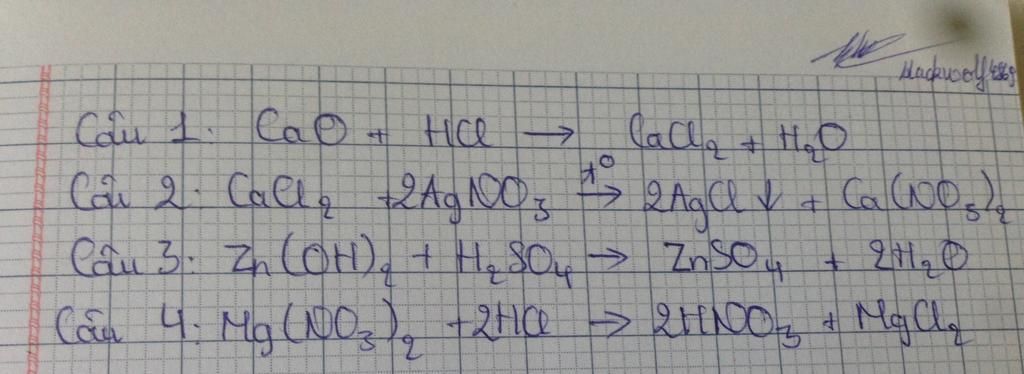 Câu 1. CaO + HCl → CaCl₂ + H₂O
Câu 2. CaCl₂ + 2AgNO₃ →(t⁰) 2AgCl ↓ + Ca(NO₃)₂
Câu 3. Zn(OH)₂ + H₂SO₄ → ZnSO₄ + 2H₂O
Câu 4. Mg(NO₃)₂ + 2HCl → 2HNO₃ + MgCl₂